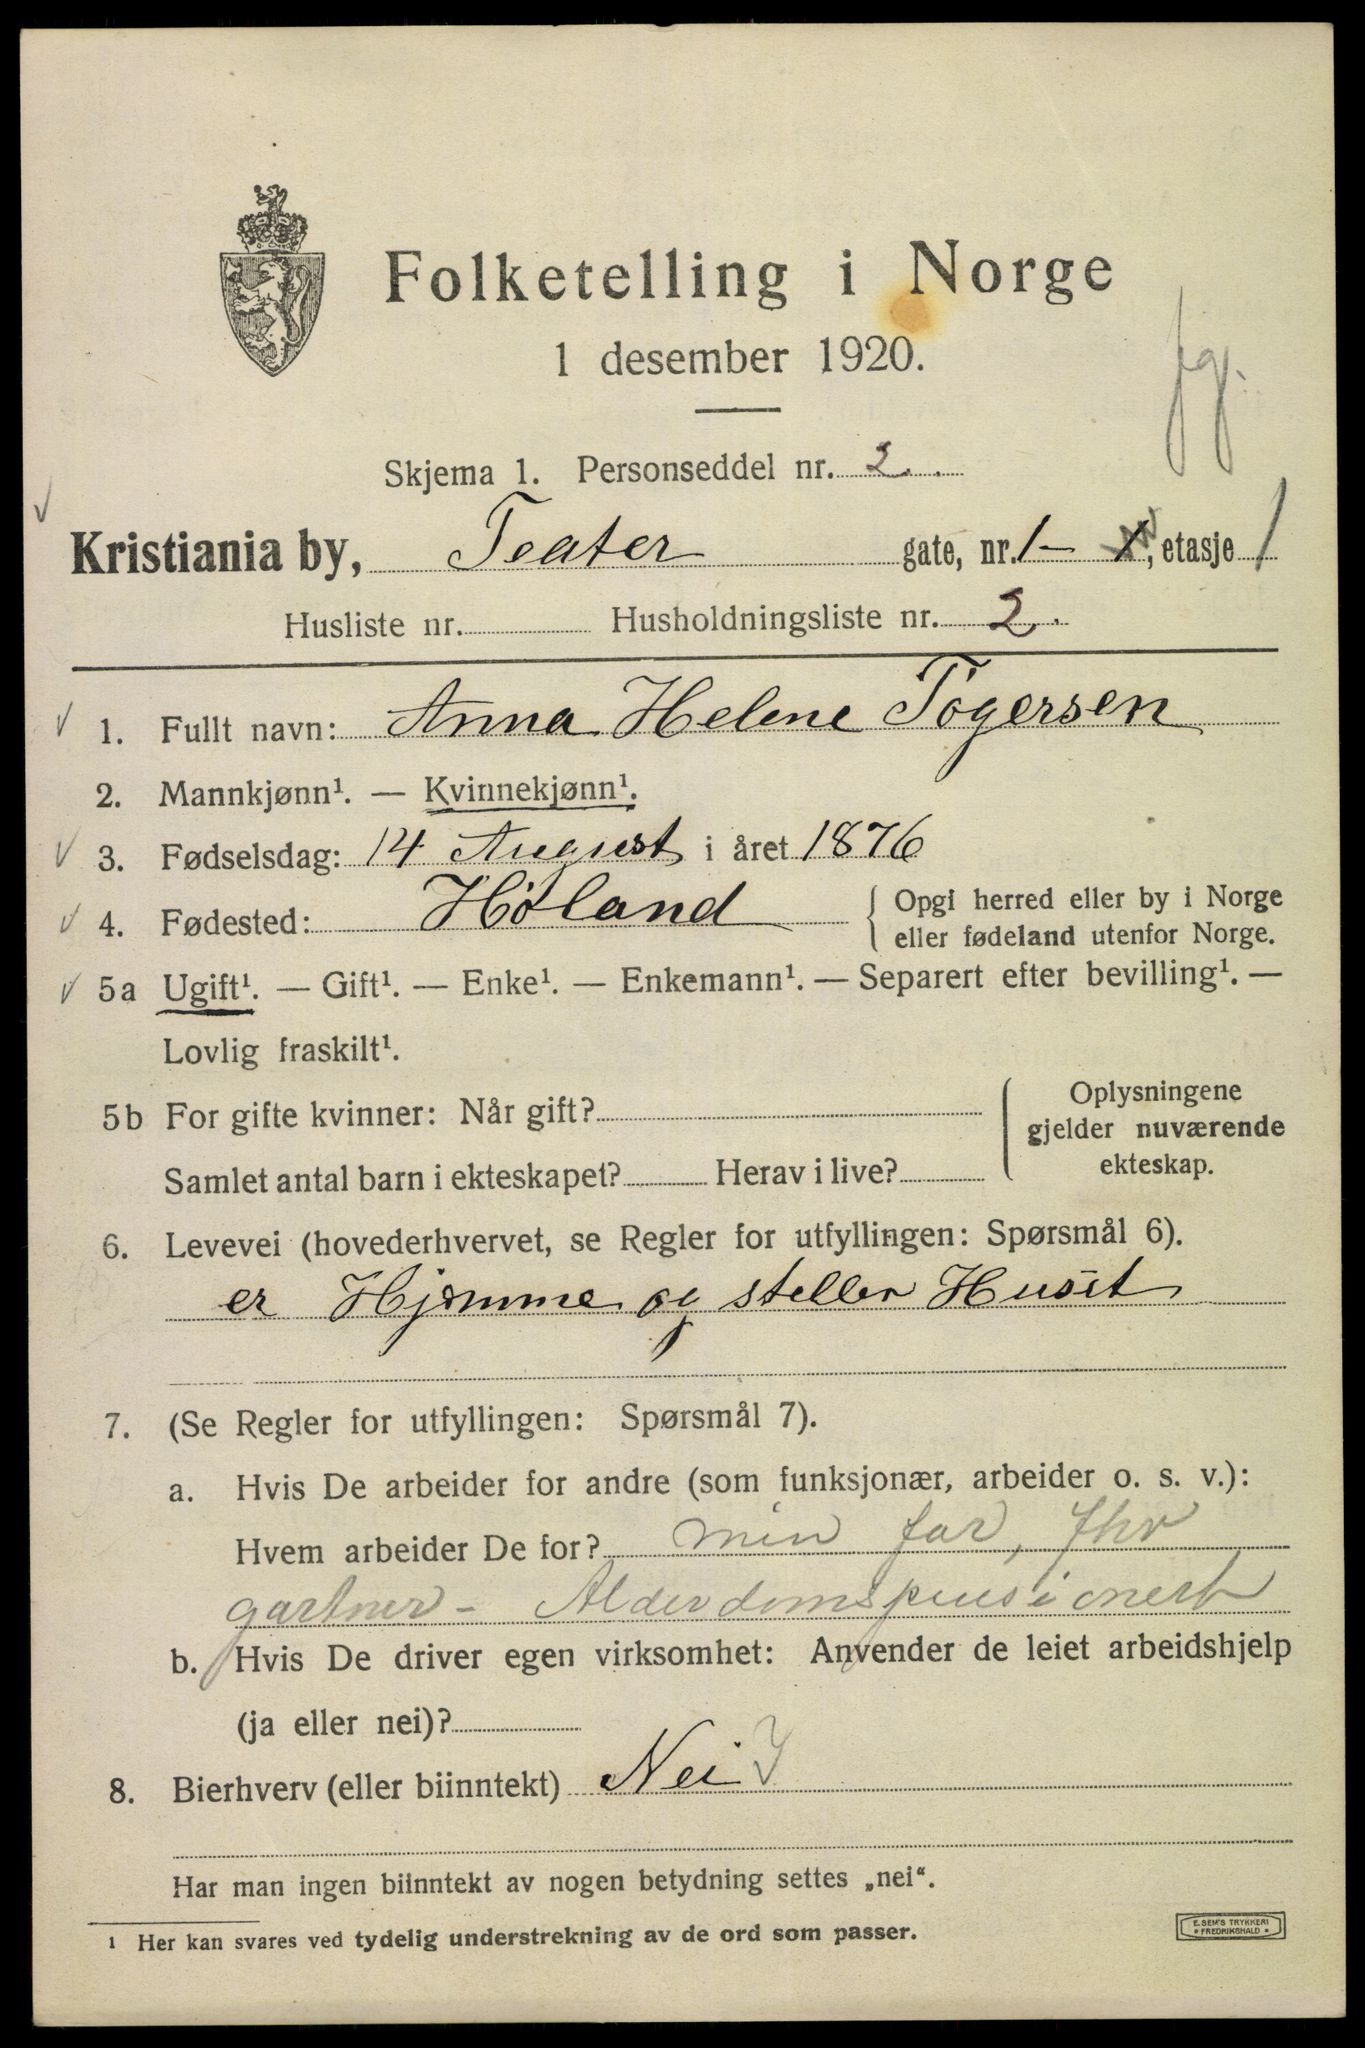 Folketelling i Norge
1 desember 1920.
fg.
Skjema 1. Personseddel nr. 2.
Kristiania by, Teater gate, nr. 1 - 1, etasje 1
Husliste nr. Husholdningsliste nr. 2.
1. Fullt navn: Anna Helene Togersen
2. Mannkjønn¹. — Kvinnekjønn¹.
3. Fødselsdag: 14 August i året 1876
4. Fødested: Høland { Opgi herred eller by i Norge
eller fødeland utenfor Norge.
5a Ugift¹. — Gift¹. — Enke¹. — Enkemann¹. — Separert efter bevilling¹. —
Lovlig fraskilt¹.
5b For gifte kvinner: Når gift? { Oplysningene
gjelder nuværende
ekteskap.
Samlet antal barn i ekteskapet? Herav i live?
6. Levevei (hovederhvervet, se Regler for utfyllingen: Spørsmål 6).
er Hjemme og steller Huset
7. (Se Regler for utfyllingen: Spørsmål 7).
a. Hvis De arbeider for andre (som funksjonær, arbeider o. s. v.):
Hvem arbeider De for? min far, fhv
gartner - Alderdomspensionert
b. Hvis De driver egen virksomhet: Anvender de leiet arbeidshjelp
(ja eller nei)?
8. Bierhverv (eller biinntekt) Nei
Har man ingen biinntekt av nogen betydning settes „nei“.
¹ Her kan svares ved tydelig understrekning av de ord som passer.
E. SEM'S TRYKKERI
* FREDRIKSHALD *